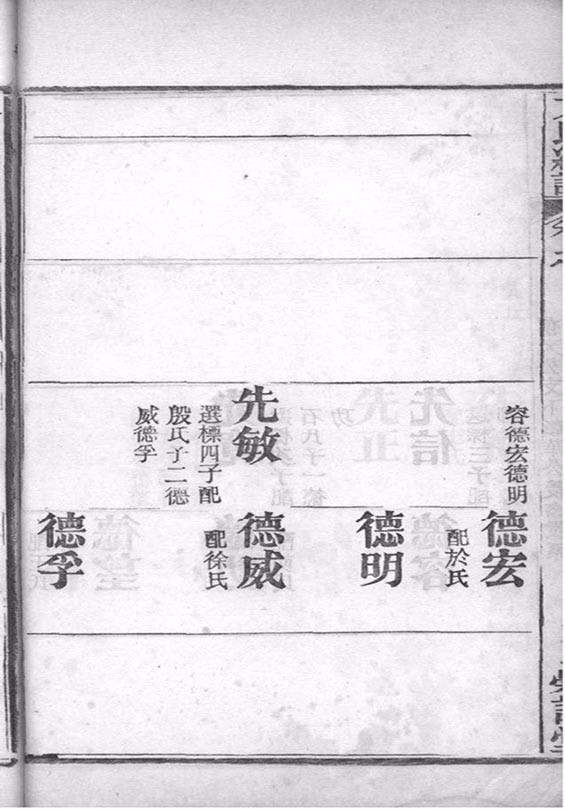 容德宏德明
先敏
選標四子配
殷氏子二德
威德孚
德宏
配於氏
德明
德威
配徐氏
德孚